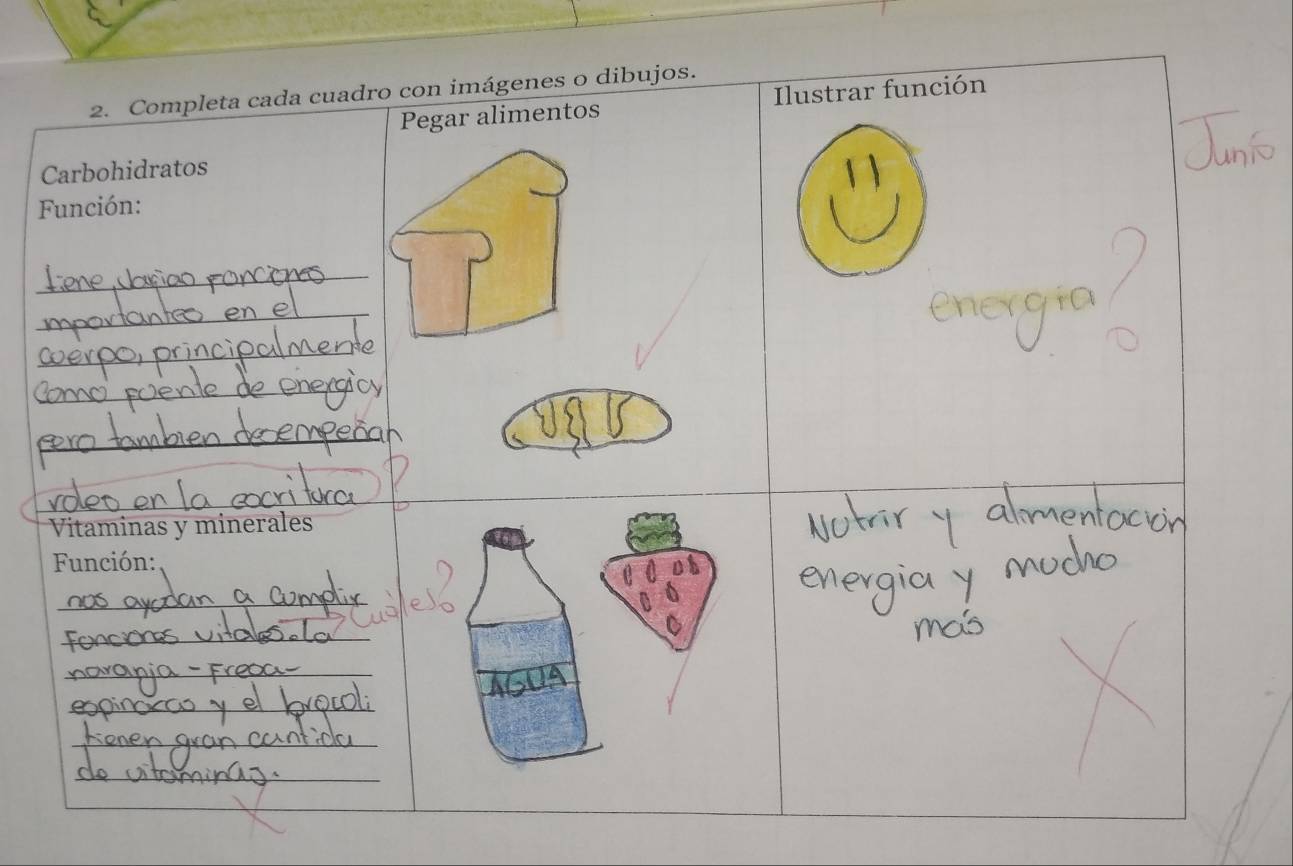 2. Completa cada cuadro con imágenes o dibujos.
Pegar alimentos
Ilustrar función
Junio
Carbohidratos
Función:
tiene, varias fonciones
mportantes en el
coerpo, principalmente
como foente de energia
pero tambien desempeñan
roles en la escritura
?
energia
?
Vitaminas y minerales
Función:
nos ayudan a cumplir
Cuáles?
Fonciones vitales. La
naranja - Fresa -
espinacas y el brocoli
tienen gran cantida
de vitaminas.
AGUA
Notrir y alimentación
energia y mocho
más